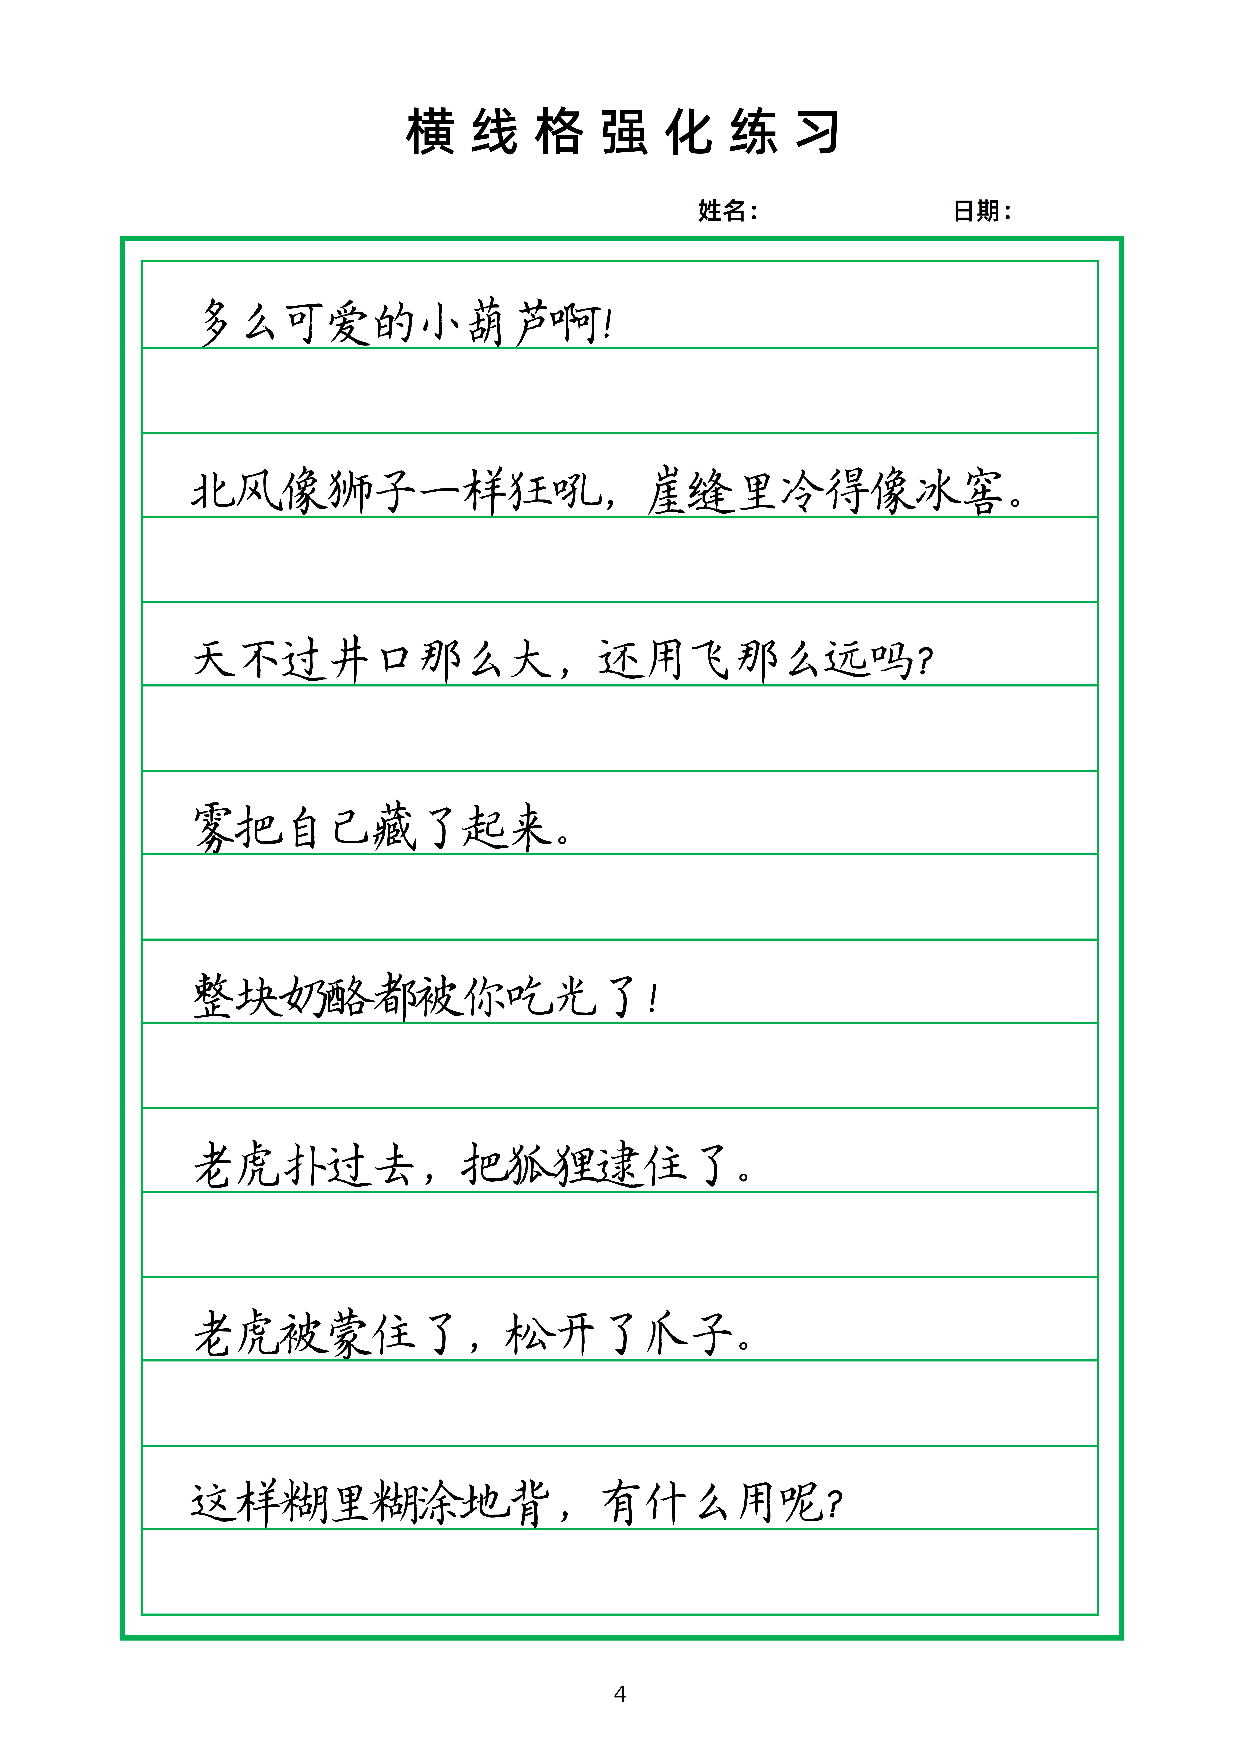 横线格强化练习
姓名： 日期：
多么可爱的小葫芦啊！
北风像狮子一样狂吼，崖缝里冷得像冰窖。
天不过井口那么大，还用飞那么远吗？
雾把自己藏了起来。
整块奶酪都被你吃光了！
老虎扑过去，把狐狸逮住了。
老虎被蒙住了，松开了爪子。
这样糊里糊涂地背，有什么用呢？
4